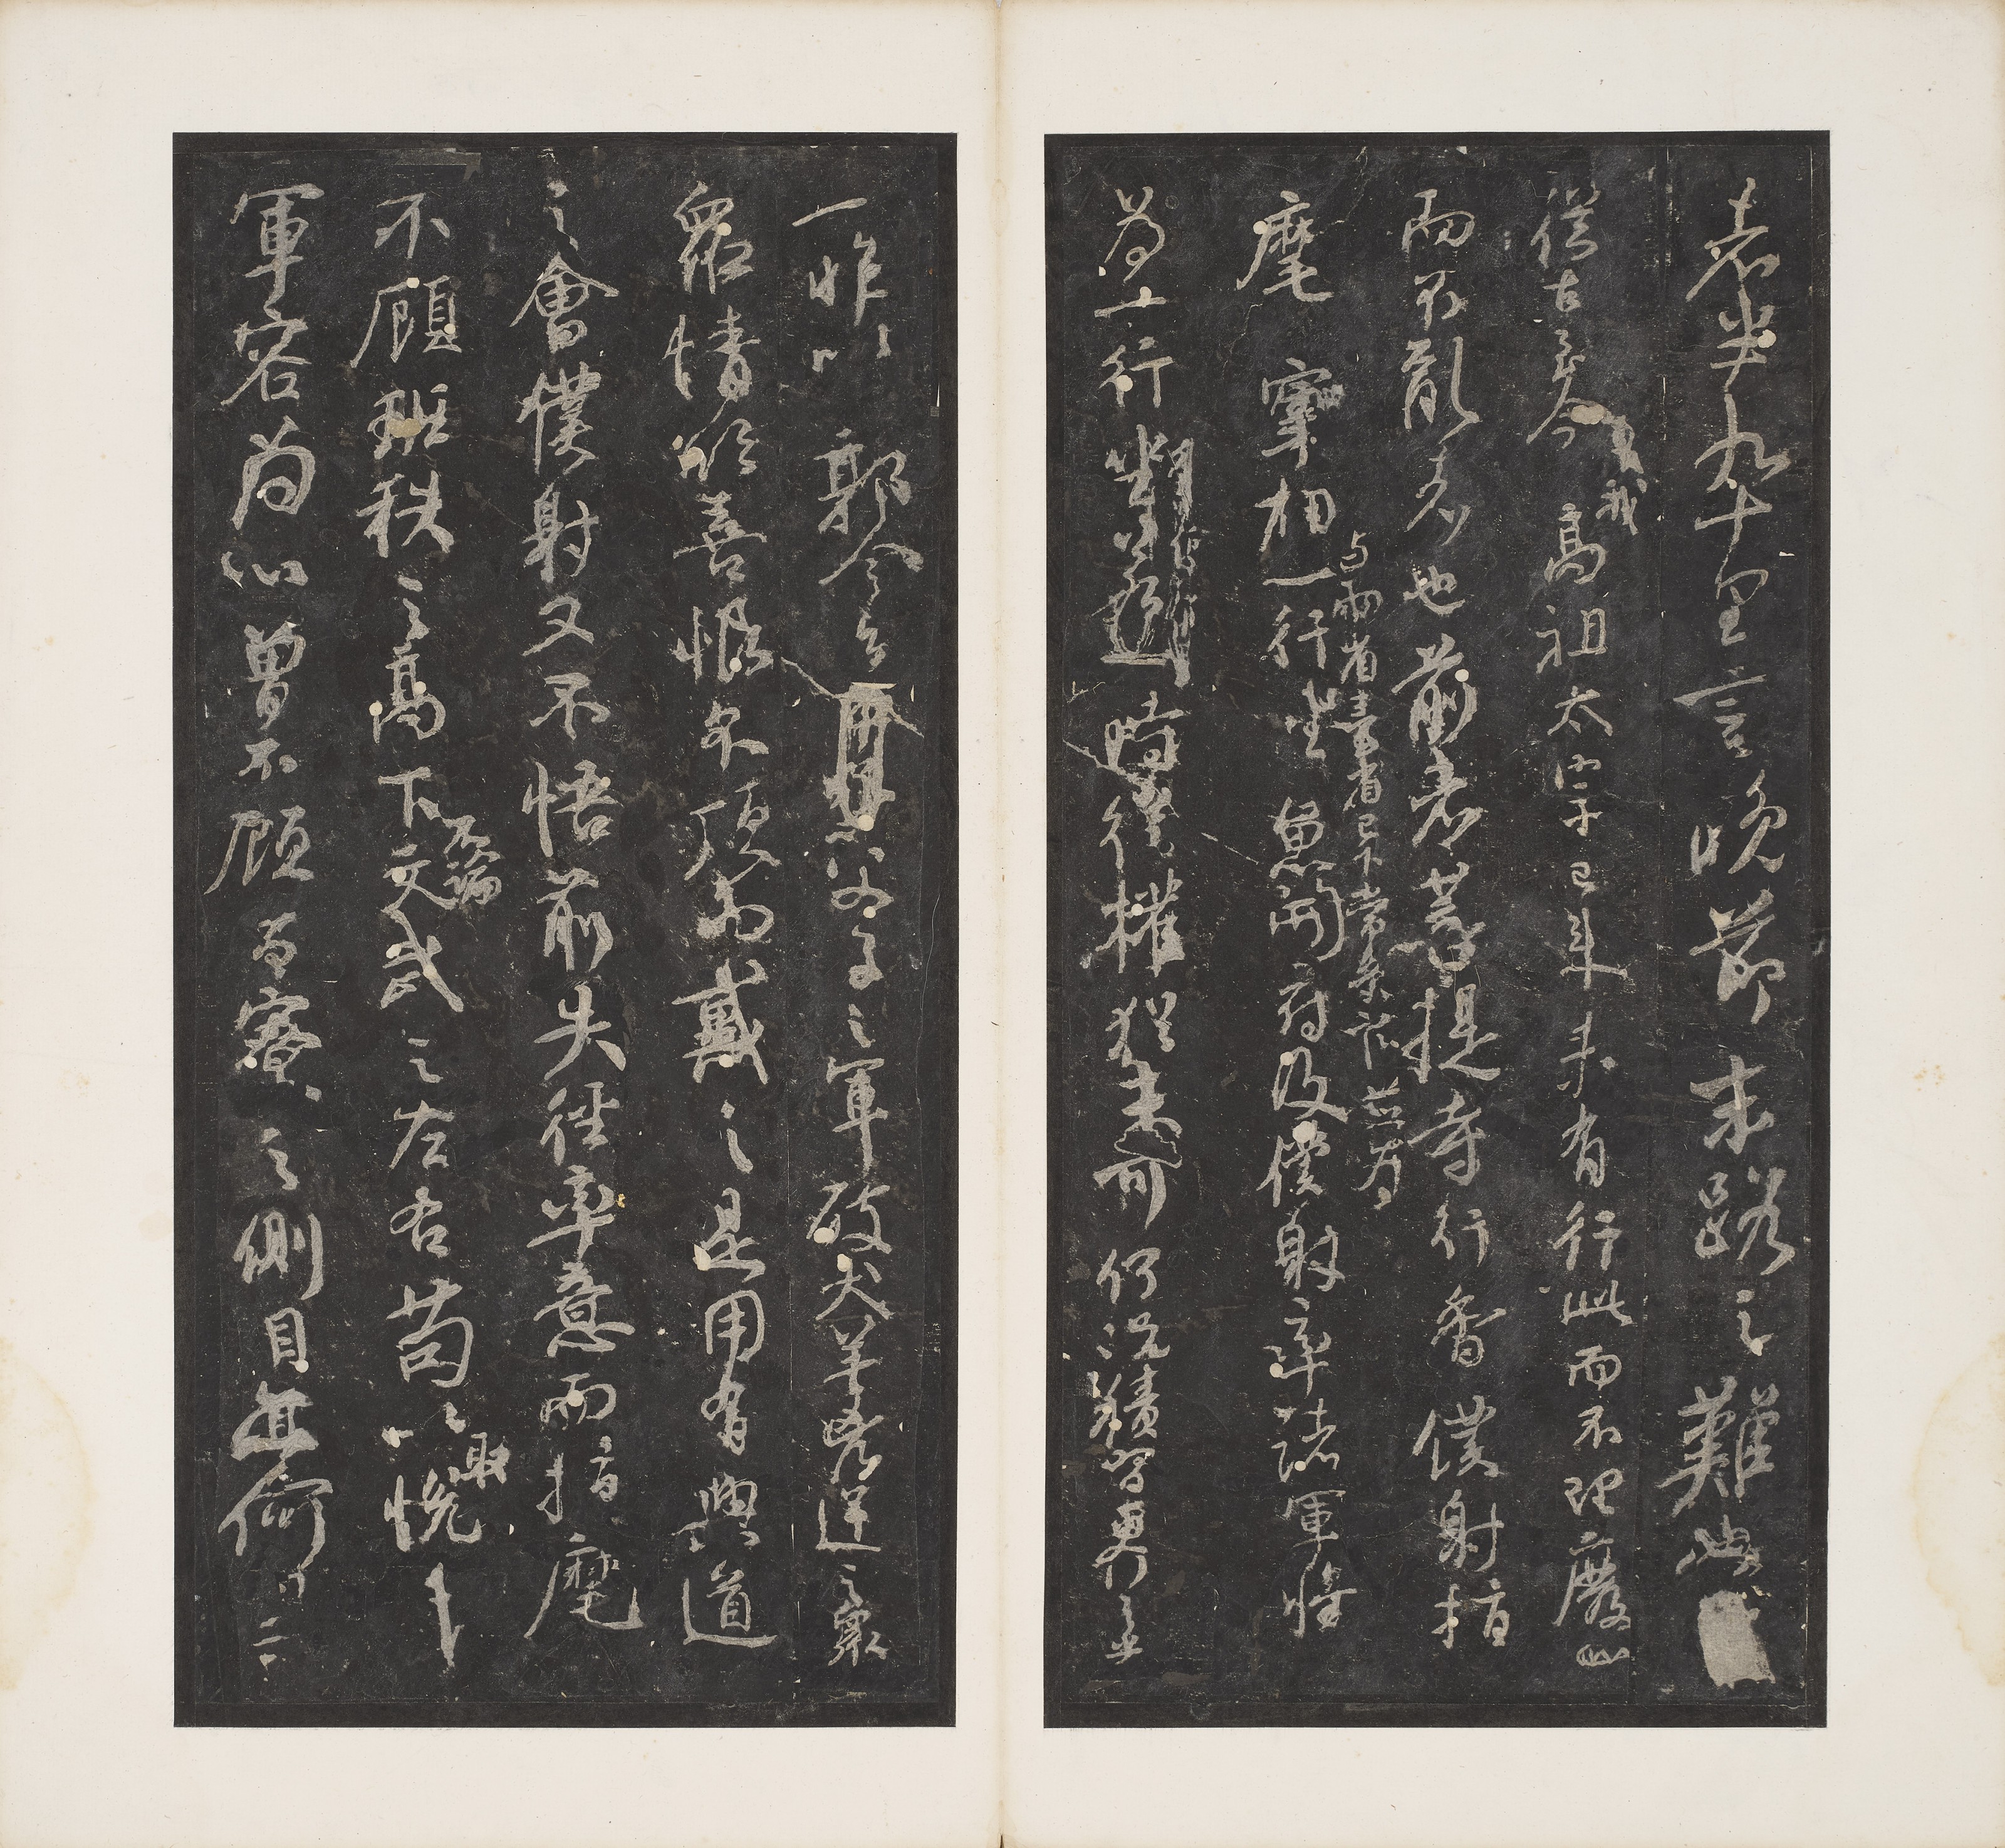 者半九十里言晚節末路之難也
從古至今暨我高祖太宗已來未有行此而不理廢此
而不亂者也前者菩提寺行香僕射指
麾宰相與兩省臺省已下常參官並為一行坐魚開府及僕射率諸軍將
為一行坐時從權猶未可何況積習更行之乎
一昨以郭令公父子之軍破犬羊兇逆之眾
眾情欣喜恨不頂而戴之是用有興道
之會僕射又不悟前失徑率意而指麾
不顧班秩之高下不論文武之左右苟以取悅
軍容為心曾不顧百寮之側目亦何